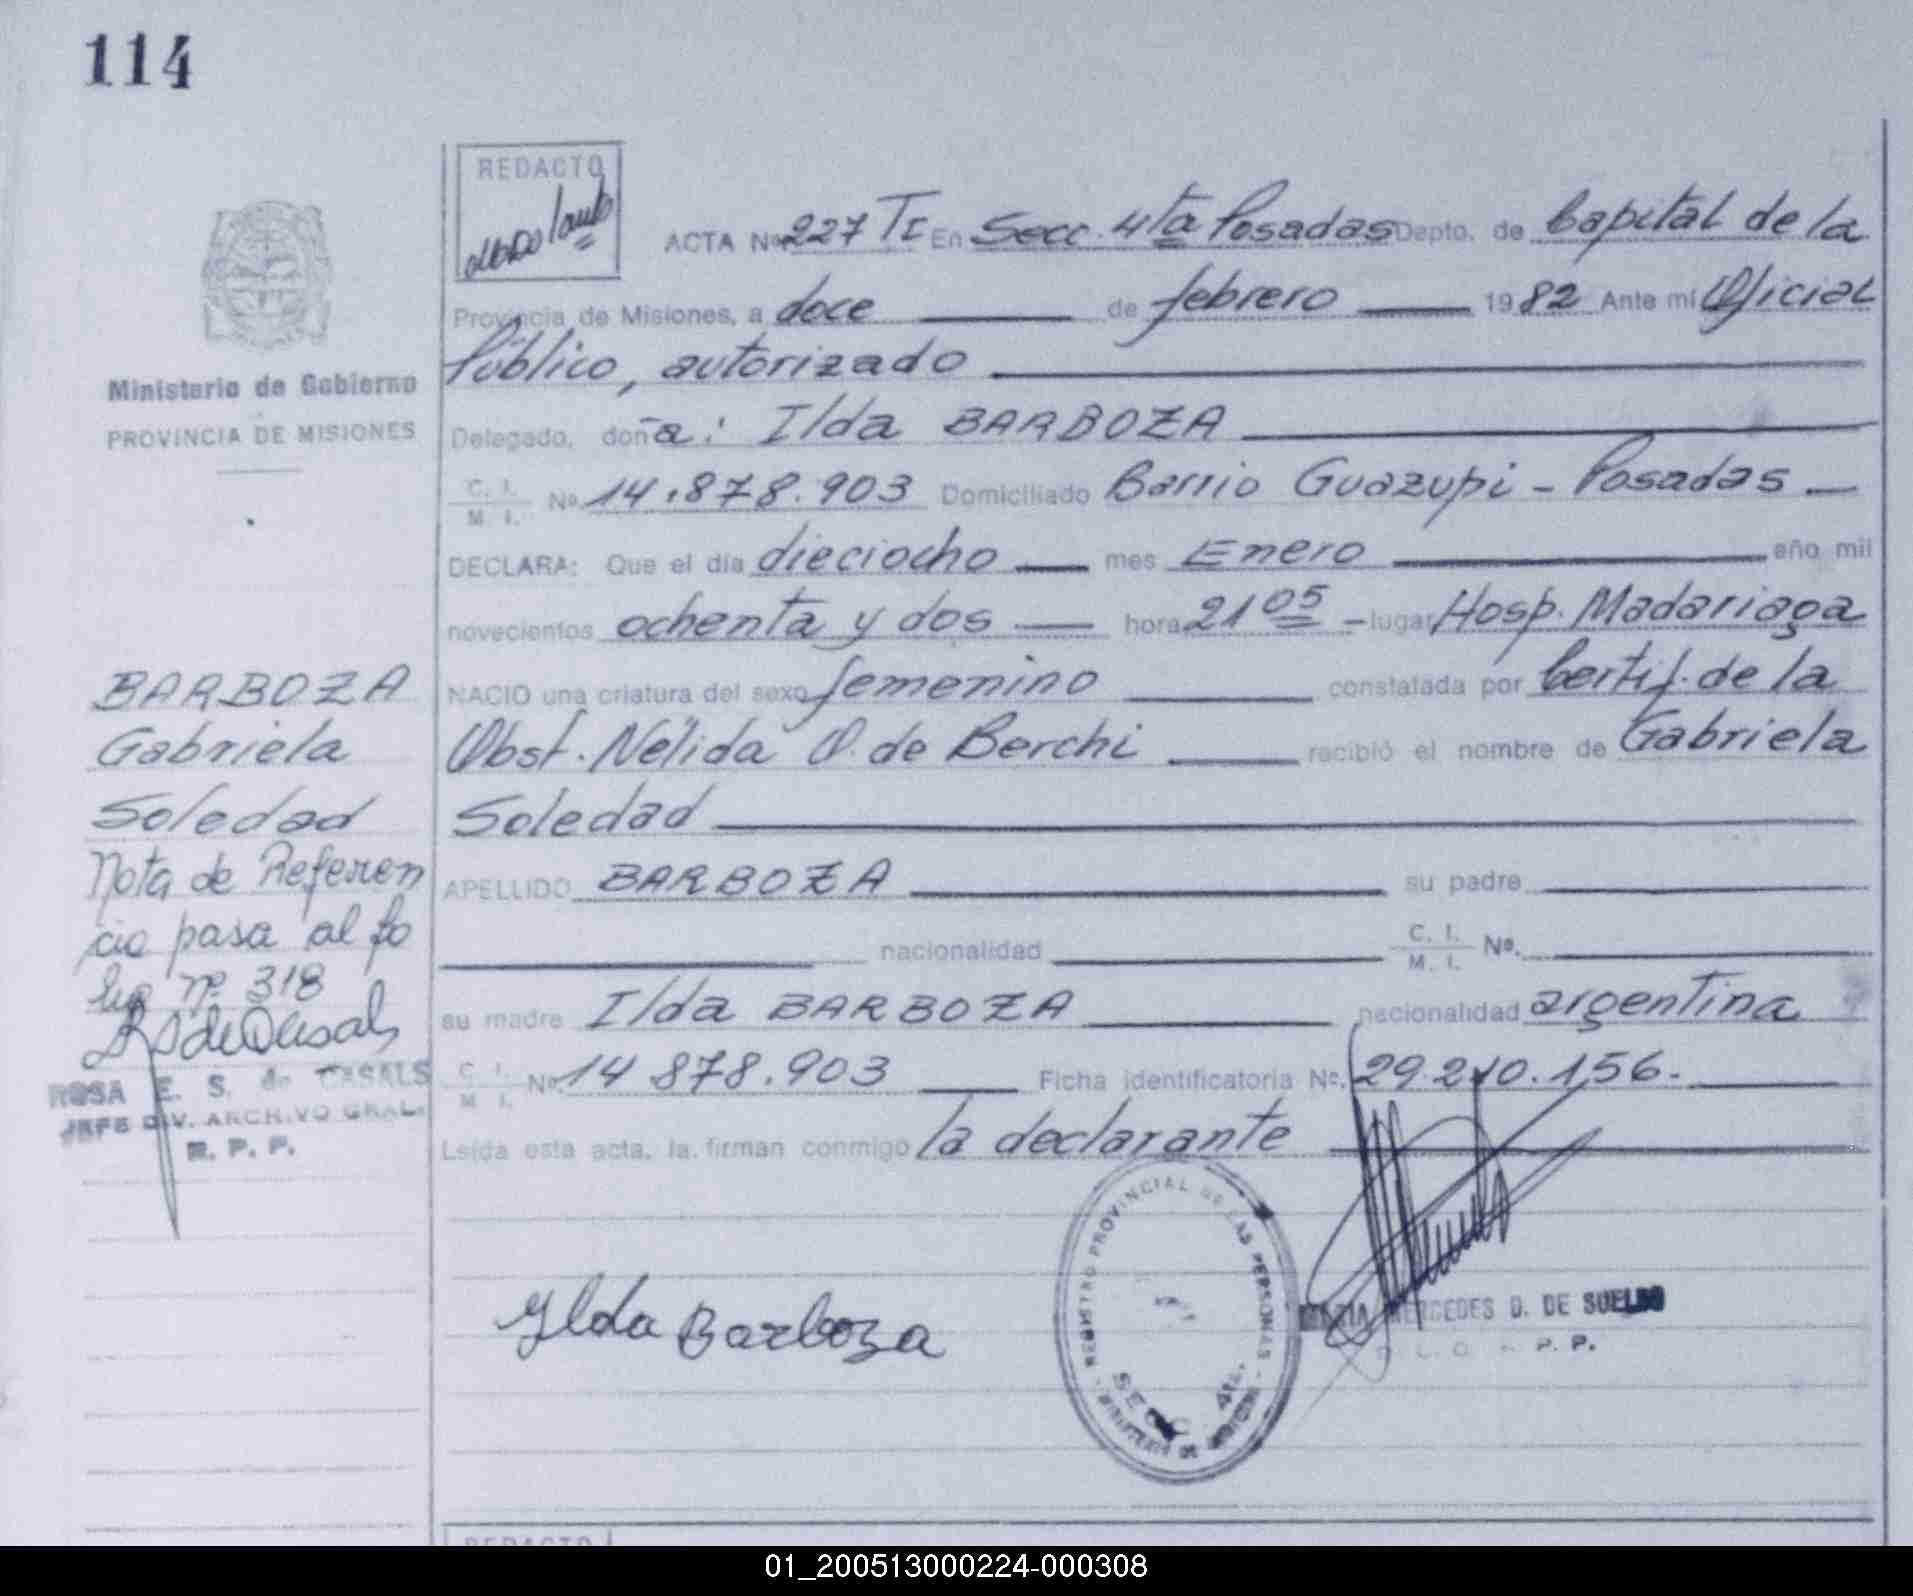 114
REDACTO
ACTA Nº 227 TI En Secc. 4ta Posadas Depto. de Capital de la
Provincia de Misiones, a doce de febrero 1982 Ante mí Oficial
Público, autorizado
Ministerio de Gobierno
PROVINCIA DE MISIONES
Delegado, doña: Ilda BARBOZA
C. I.
M. I. Nº 14.878.903 Domiciliado Barrio Guazupi - Posadas
DECLARA: Que el día dieciocho mes Enero año mil
novecientos ochenta y dos hora 21 05 - lugar Hosp. Madariaga
NACIO una criatura del sexo femenino constatada por Certif. de la
Obst. Nélida O. de Berchi recibió el nombre de Gabriela
Soledad
BARBOZA
Gabriela
Soledad
Nota de Referen
cia pasa al fo
lio nº 318
ROSA E. S. de CASALS
JEFE DIV. ARCHIVO GRAL.
R. P. P.
APELLIDO BARBOZA su padre
nacionalidad C. I.
M. I. Nº.
su madre Ilda BARBOZA nacionalidad argentina
C. I.
M. I. Nº 14.878.903 Ficha identificatoria Nº. 29.210.156.-
Leída esta acta, la firman conmigo la declarante
Ylda Barboza
REGISTRO PROVINCIAL DE LAS PERSONAS
SECC. 4ta.
MINISTERIO DE
MARIA MERCEDES D. DE SUELDO
P. P.
REDACTO
01_200513000224-000308